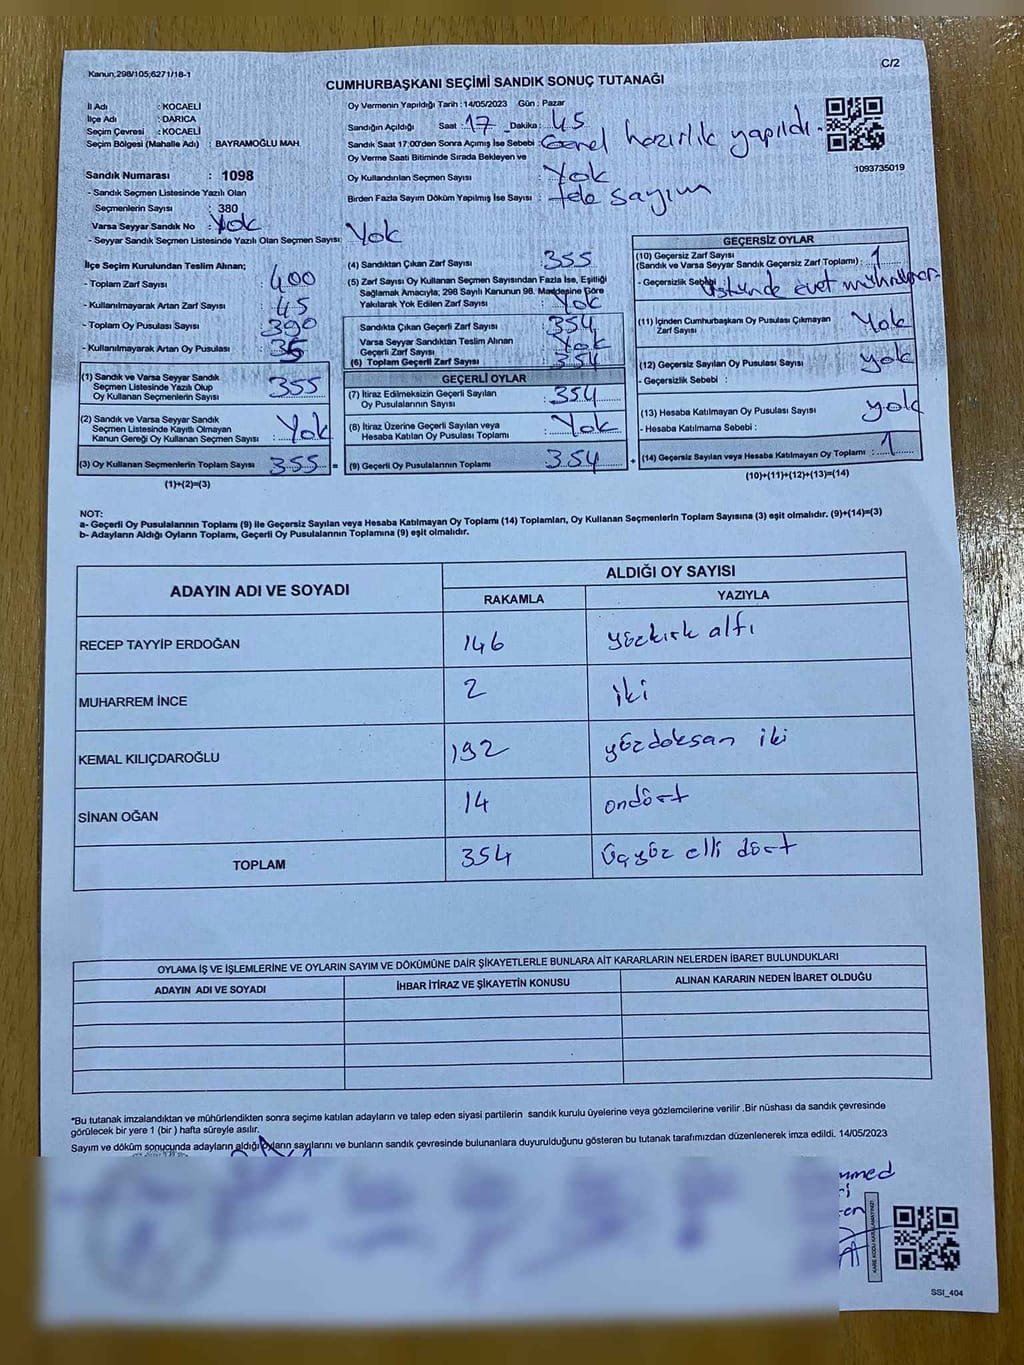 Kanun;298/105;6271/18-1
C/2
CUMHURBAŞKANI SEÇİMİ SANDIK SONUÇ TUTANAĞI
İl Adı : KOCAELİ
İlçe Adı : DARICA
Seçim Çevresi : KOCAELİ
Seçim Bölgesi (Mahalle Adı) : BAYRAMOĞLU MAH.
Sandık Numarası : 1098
- Sandık Seçmen Listesinde Yazılı Olan
Seçmenlerin Sayısı : 380
Varsa Seyyar Sandık No : Yok
- Seyyar Sandık Seçmen Listesinde Yazılı Olan Seçmen Sayısı: Yok
Oy Vermenin Yapıldığı Tarih : 14/05/2023 Gün : Pazar
Sandığın Açıldığı Saat : 17 Dakika : 45
Sandık Saat 17:00'den Sonra Açımış İse Sebebi : Genel hazırlık yapıldı.
Oy Verme Saati Bitiminde Sırada Bekleyen ve
Oy Kullandırılan Seçmen Sayısı : Yok
Birden Fazla Sayım Döküm Yapılmış İse Sayısı : tek sayım
1093735019
İlçe Seçim Kurulundan Teslim Alınan;
- Toplam Zarf Sayısı : 400
- Kullanılmayarak Artan Zarf Sayısı : 45
- Toplam Oy Pusulası Sayısı : 390
- Kullanılmayarak Artan Oy Pusulası : 35
(1) Sandık ve Varsa Seyyar Sandık
Seçmen Listesinde Yazılı Olup
Oy Kullanan Seçmenlerin Sayısı : 355
(2) Sandık ve Varsa Seyyar Sandık
Seçmen Listesinde Kayıtlı Olmayan
Kanun Gereği Oy Kullanan Seçmen Sayısı : Yok
(3) Oy Kullanan Seçmenlerin Toplam Sayısı : 355 =
(1)+(2)=(3)
(4) Sandıktan Çıkan Zarf Sayısı : 355
(5) Zarf Sayısı Oy Kullanan Seçmen Sayısından Fazla İse, Eşitliği
Sağlamak Amacıyla; 298 Sayılı Kanunun 98. Maddesine Göre
Yakılarak Yok Edilen Zarf Sayısı : Yok
Sandıkta Çıkan Geçerli Zarf Sayısı : 354
Varsa Seyyar Sandıktan Teslim Alınan
Geçerli Zarf Sayısı : Yok
(6) Toplam Geçerli Zarf Sayısı : 354
GEÇERLİ OYLAR
(7) İtiraz Edilmeksizin Geçerli Sayılan
Oy Pusulalarının Sayısı : 354
(8) İtiraz Üzerine Geçerli Sayılan veya
Hesaba Katılan Oy Pusulası Toplamı : Yok
(9) Geçerli Oy Pusulalarının Toplamı : 354 +
GEÇERSİZ OYLAR
(10) Geçersiz Zarf Sayısı
(Sandık ve Varsa Seyyar Sandık Geçersiz Zarf Toplamı) : 1
- Geçersizlik Sebebi : Üstünde evet mührü var.
(11) İçinden Cumhurbaşkanı Oy Pusulası Çıkmayan
Zarf Sayısı : Yok
(12) Geçersiz Sayılan Oy Pusulası Sayısı : yok
- Geçersizlik Sebebi :
(13) Hesaba Katılmayan Oy Pusulası Sayısı : yok
- Hesaba Katılmama Sebebi :
(14) Geçersiz Sayılan veya Hesaba Katılmayan Oy Toplamı : 1
(10)+(11)+(12)+(13)=(14)
NOT:
a- Geçerli Oy Pusulalarının Toplamı (9) ile Geçersiz Sayılan veya Hesaba Katılmayan Oy Toplamı (14) Toplamları, Oy Kullanan Seçmenlerin Toplam Sayısına (3) eşit olmalıdır. (9)+(14)=(3)
b- Adayların Aldığı Oyların Toplamı, Geçerli Oy Pusulalarının Toplamına (9) eşit olmalıdır.
ADAYIN ADI VE SOYADI
ALDIĞI OY SAYISI
RAKAMLA YAZIYLA
RECEP TAYYİP ERDOĞAN 146 yüzkırk altı
MUHARREM İNCE 2 iki
KEMAL KILIÇDAROĞLU 192 yüzdoksan iki
SİNAN OĞAN 14 ondört
TOPLAM 354 Üçyüz elli dört
OYLAMA İŞ VE İŞLEMLERİNE VE OYLARIN SAYIM VE DÖKÜMÜNE DAİR ŞİKAYETLERLE BUNLARA AİT KARARLARIN NELERDEN İBARET BULUNDUKLARI
ADAYIN ADI VE SOYADI
İHBAR İTİRAZ VE ŞİKAYETİN KONUSU
ALINAN KARARIN NEDEN İBARET OLDUĞU
*Bu tutanak imzalandıktan ve mühürlendikten sonra seçime katılan adayların ve talep eden siyasi partilerin sandık kurulu üyelerine veya gözlemcilerine verilir .Bir nüshası da sandık çevresinde
görülecek bir yere 1 (bir ) hafta süreyle asılır.
Sayım ve döküm sonucunda adayların aldığı oyların sayılarını ve bunların sandık çevresinde bulunanlara duyurulduğunu gösteren bu tutanak tarafımızdan düzenlenerek imza edildi. 14/05/2023
KARE KODU KARALAMAYINIZ!
SSI_404